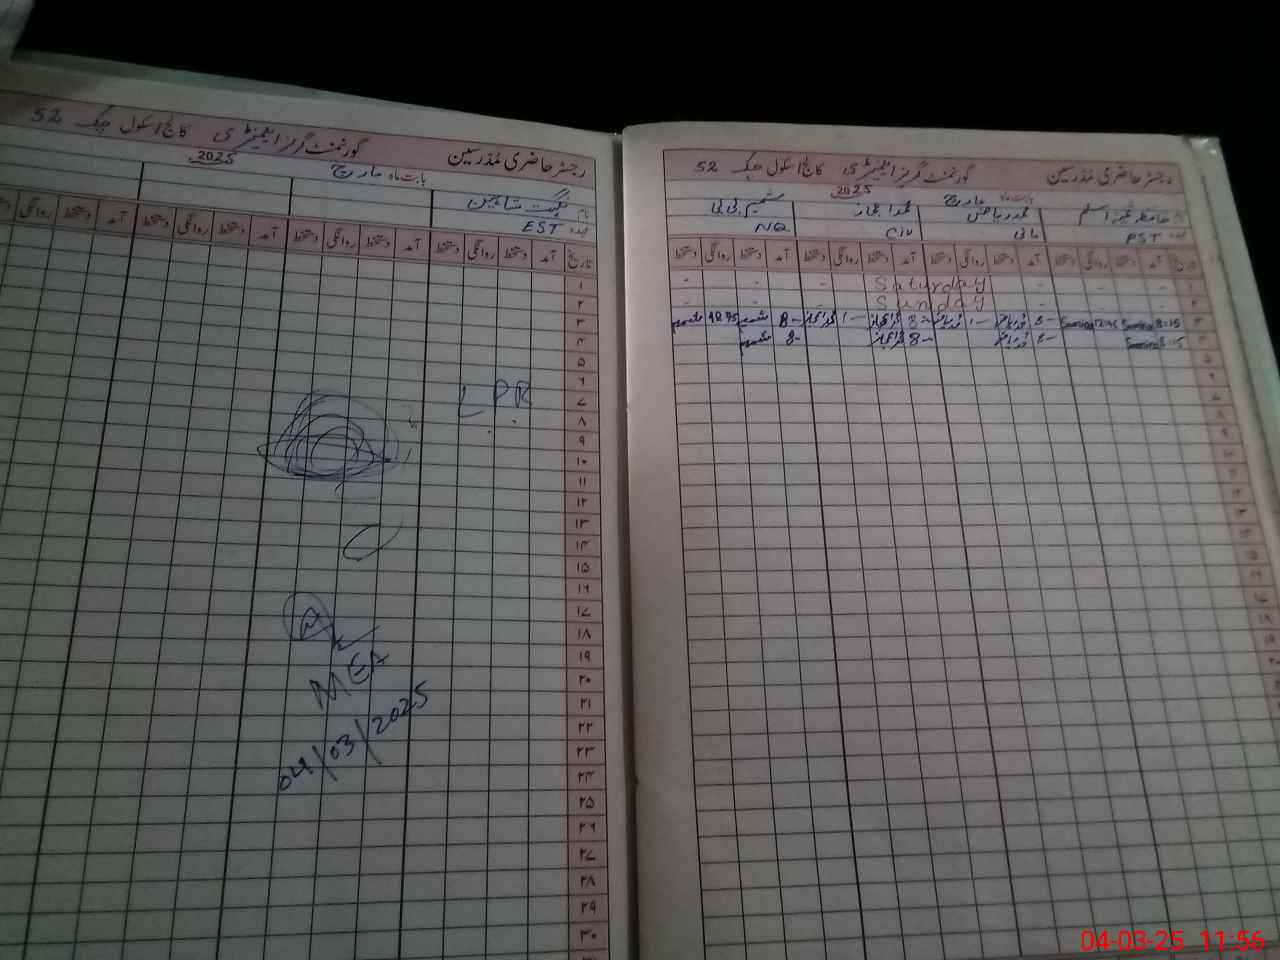 رجسٹر حاضری مدرسین گورنمنٹ گرلز ایلیمنٹری کالج / سکول چک 52
بابت ماہ مارچ 2025
نام نگہت شاہین
عہدہ EST
تاریخ آمد دستخط روانگی دستخط آمد دستخط روانگی دستخط آمد دستخط روانگی دستخط
۱
۲
۳
۴
۵
۶
۷
۸
۹
۱۰
۱۱
۱۲
۱۳
۱۴
۱۵
۱۶
۱۷
۱۸
۱۹
۲۰
۲۱
۲۲
۲۳
۲۴
۲۵
۲۶
۲۷
۲۸
۲۹
۳۰
LPR
MEA
04/03/2025
رجسٹر حاضری مدرسین گورنمنٹ گرلز ایلیمنٹری کالج / سکول چک 52
بابت ماہ مارچ 2025
محمد اعجاز شمیم بی بی
عہدہ PST مالی Civ NQ
تاریخ آمد دستخط روانگی دستخط آمد دستخط روانگی دستخط آمد دستخط روانگی دستخط آمد دستخط روانگی دستخط
۱ - - - Saturday - - -
۲ - - - Sunday - - -
۳ 8:15 Samina 12:45 Samina 8- 1- 8- 1- 8- شمیم شمیم
۴ 8:15 Samina 8- 8- 8- شمیم
04-03-25 11:56